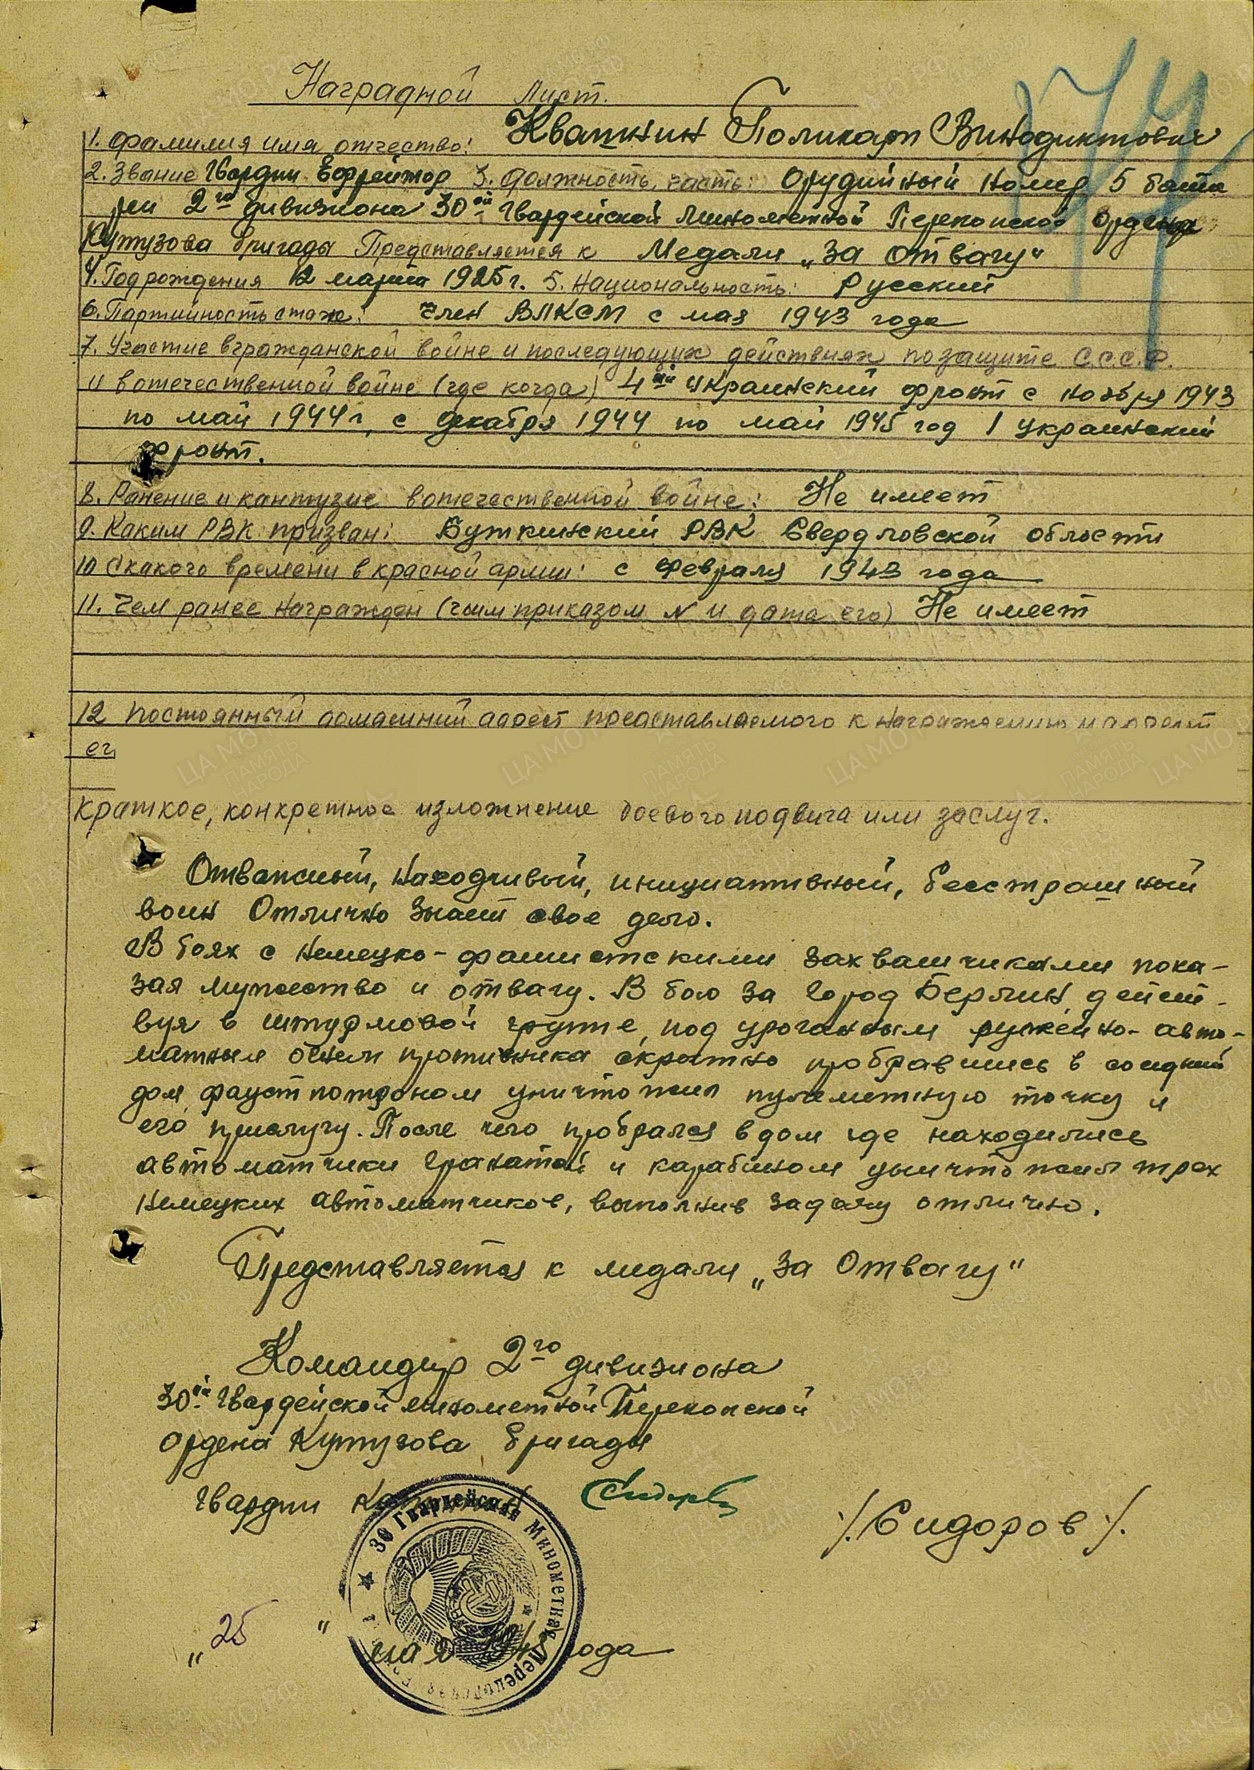 Наградной лист.
1. Фамилия имя отчество: Квашнин Поликарп Винодиктович
2. Звание Гвардии Ефрейтор 3. Должность, часть: Орудийный номер 5 бата
реи 2го дивизиона 30ой Гвардейской Минометной Перекопской Ордена
Кутузова бригады Представляется к Медали „За отвагу"
4. Год рождения 12 марта 1925 г. 5. Национальность: Русский
6. Партийность стаж: Член ВЛКСМ с мая 1943 года
7. Участие вгражданской войне и последующих действиях по защите С.С.С.Р.
и вотечественной войне (где когда) 4ый Украинский фронт с ноября 1943
по май 1944 г, с декабря 1944 по май 1945 год 1 Украинский
фронт.
8. Ранение и кантузие вотечественной войне: Не имеет
9. Каким РВК призван: Буткинский РВК Свердловской области
10 Скакого времени в красной армии: с февраля 1943 года
11. Чем ранее награжден (чьим приказом N и дата его) Не имеет
12 Постоянный домашний адрест представляемого к награждению и адрест
ег
Краткое, конкретное изложнение боевого подвига или заслуг.
Отважный, находчивый, инициативный, бесстрашный
воин Отлично знает свое дело.
В боях с немецко-фашистскими захватчиками пока-
зал мужество и отвагу. В бою за город Берлин, дейст-
вуя в штурмовой группе, под ураганным ружейно-авто-
матным огнем противника скрытно пробравшись в соседний
дом фаустпотроном уничтожил пулеметную точку и
его прислугу. После чего пробрался вдом где находились
автоматчики гранатой и карабином уничтожил трех
немецких автоматчиков, выполнив задачу отлично.
Представляется к медали „За Отвагу"
Командир 2го дивизиона
30ой Гвардейской минометной Перекопской
ордена Кутузова бригады
Гвардии Капитан
/. Сидоров /.
„25" мая 1945 года
★ 30 Гвардейская Минометная Перекопская